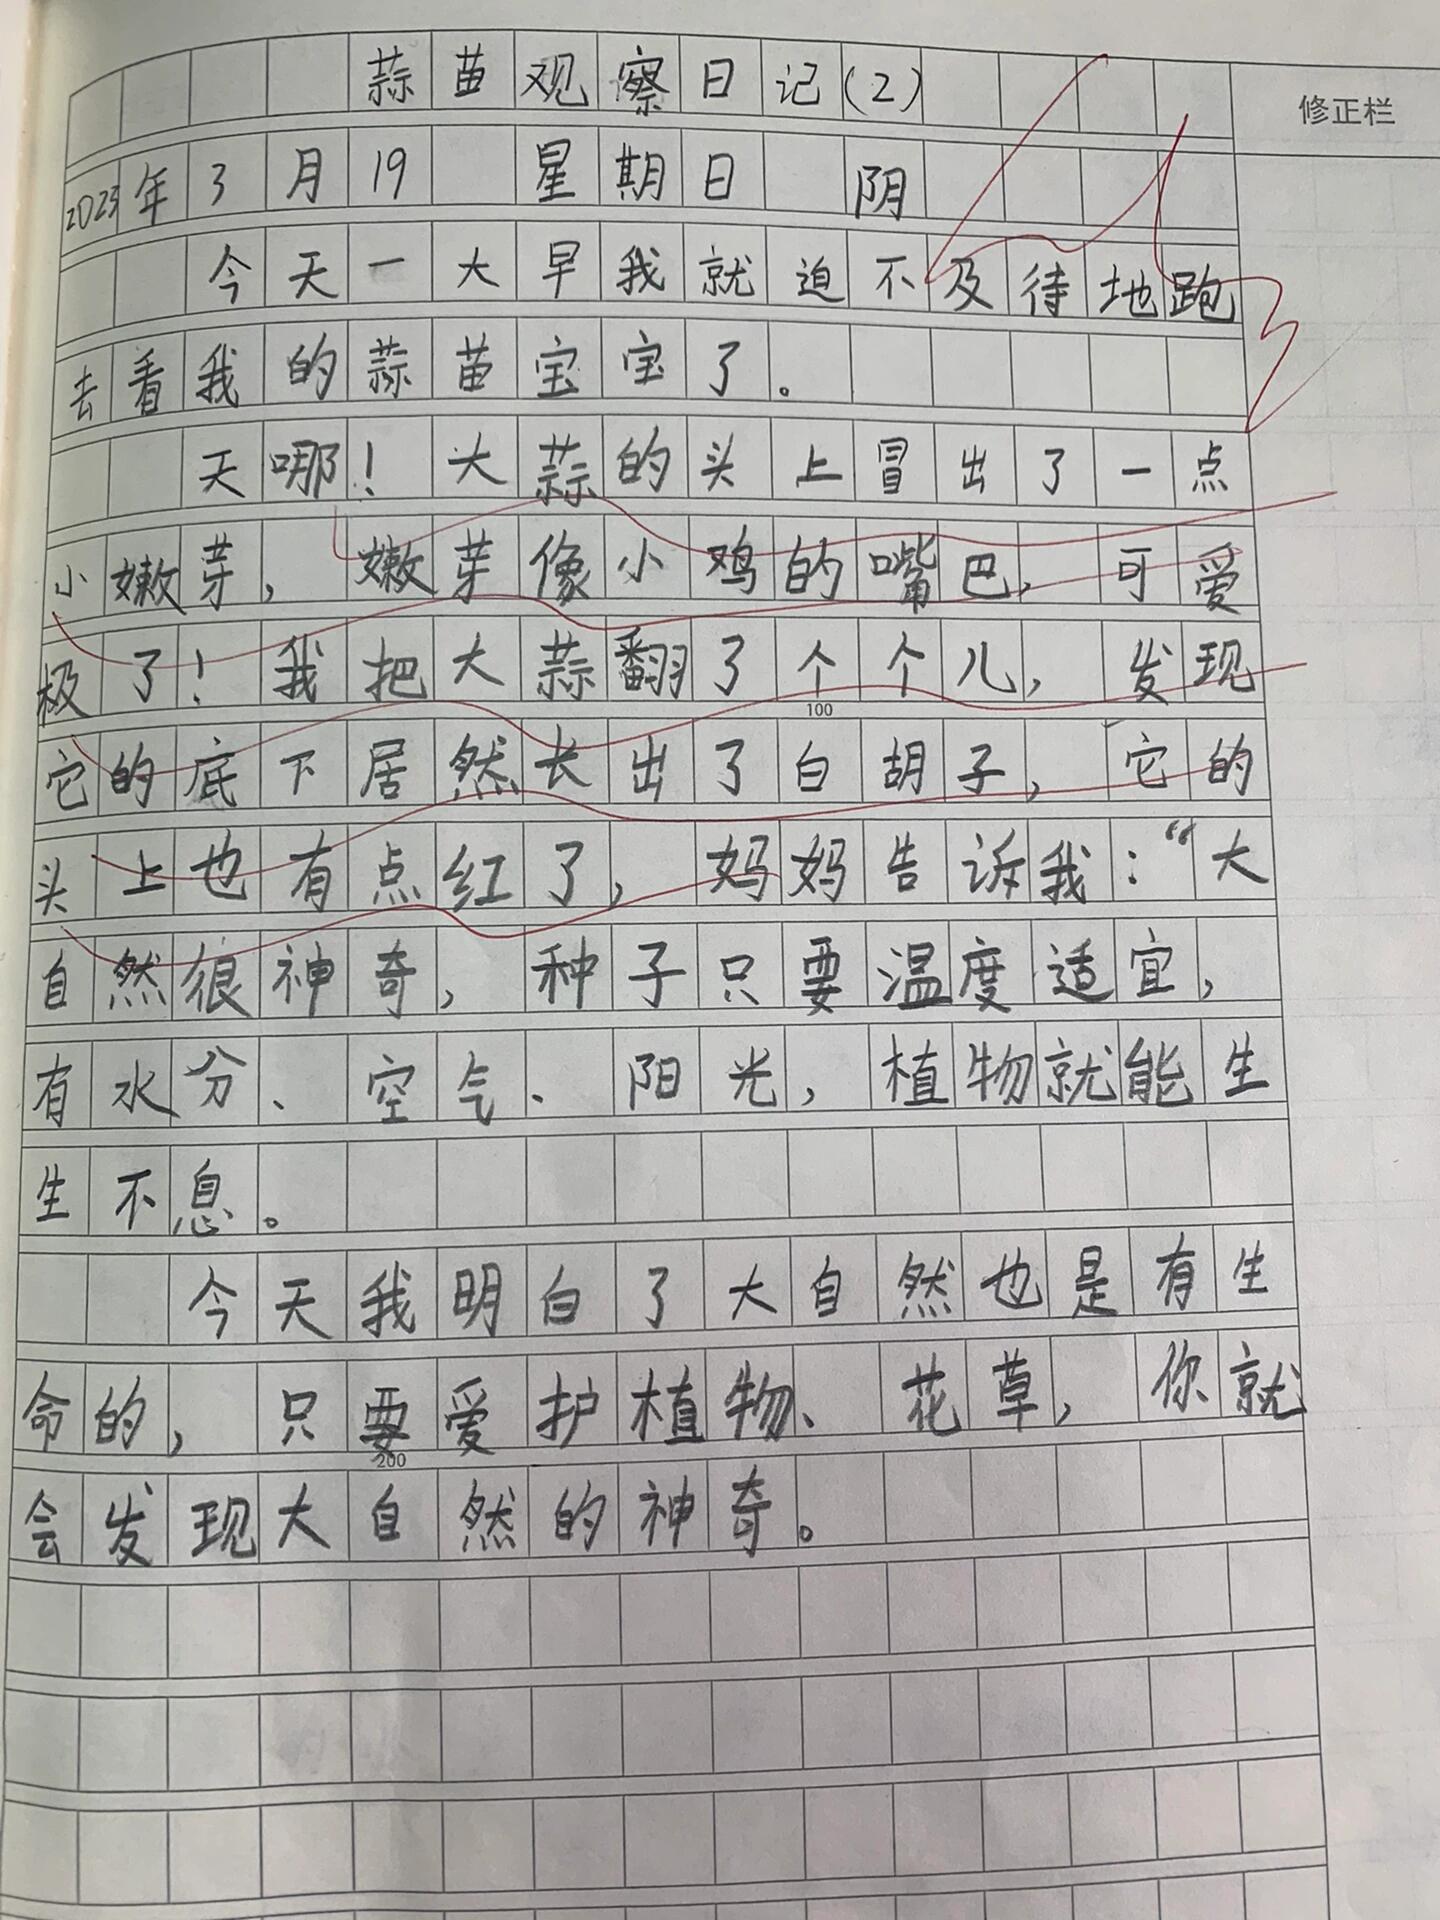 蒜苗观察日记(2)
修正栏
2023年3月19 星期日 阴
今天一大早我就迫不及待地跑
去看我的蒜苗宝宝了。
天哪!大蒜的头上冒出了一点
小嫩芽,嫩芽像小鸡的嘴巴,可爱
极了!我把大蒜翻了个个儿,发现
100
它的底下居然长出了白胡子,它的
头上也有点红了,妈妈告诉我:“大
自然很神奇,种子只要温度适宜,
有水分、空气、阳光,植物就能生
生不息。
今天我明白了大自然也是有生
命的,只要爱护植物、花草,你就
200
会发现大自然的神奇。